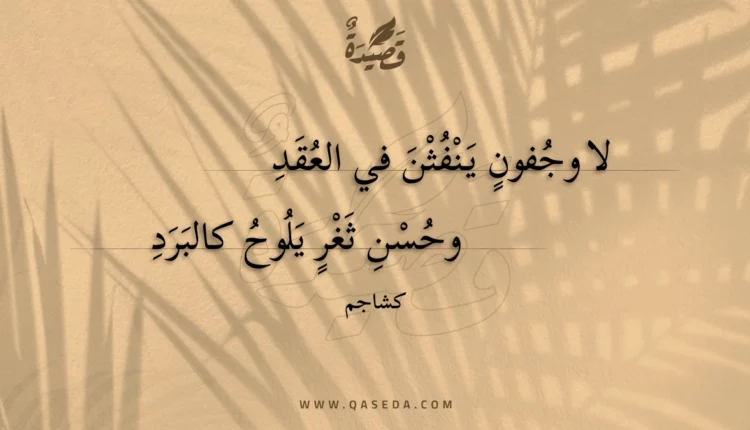 قَصِيْدَةٌ
لا وجُفونٍ يَنْفُثْنَ في العُقَدِ
وحُسْنِ ثَغْرٍ يَلُوحُ كالبَرَدِ
كشاجم
WWW.QASEDA.COM